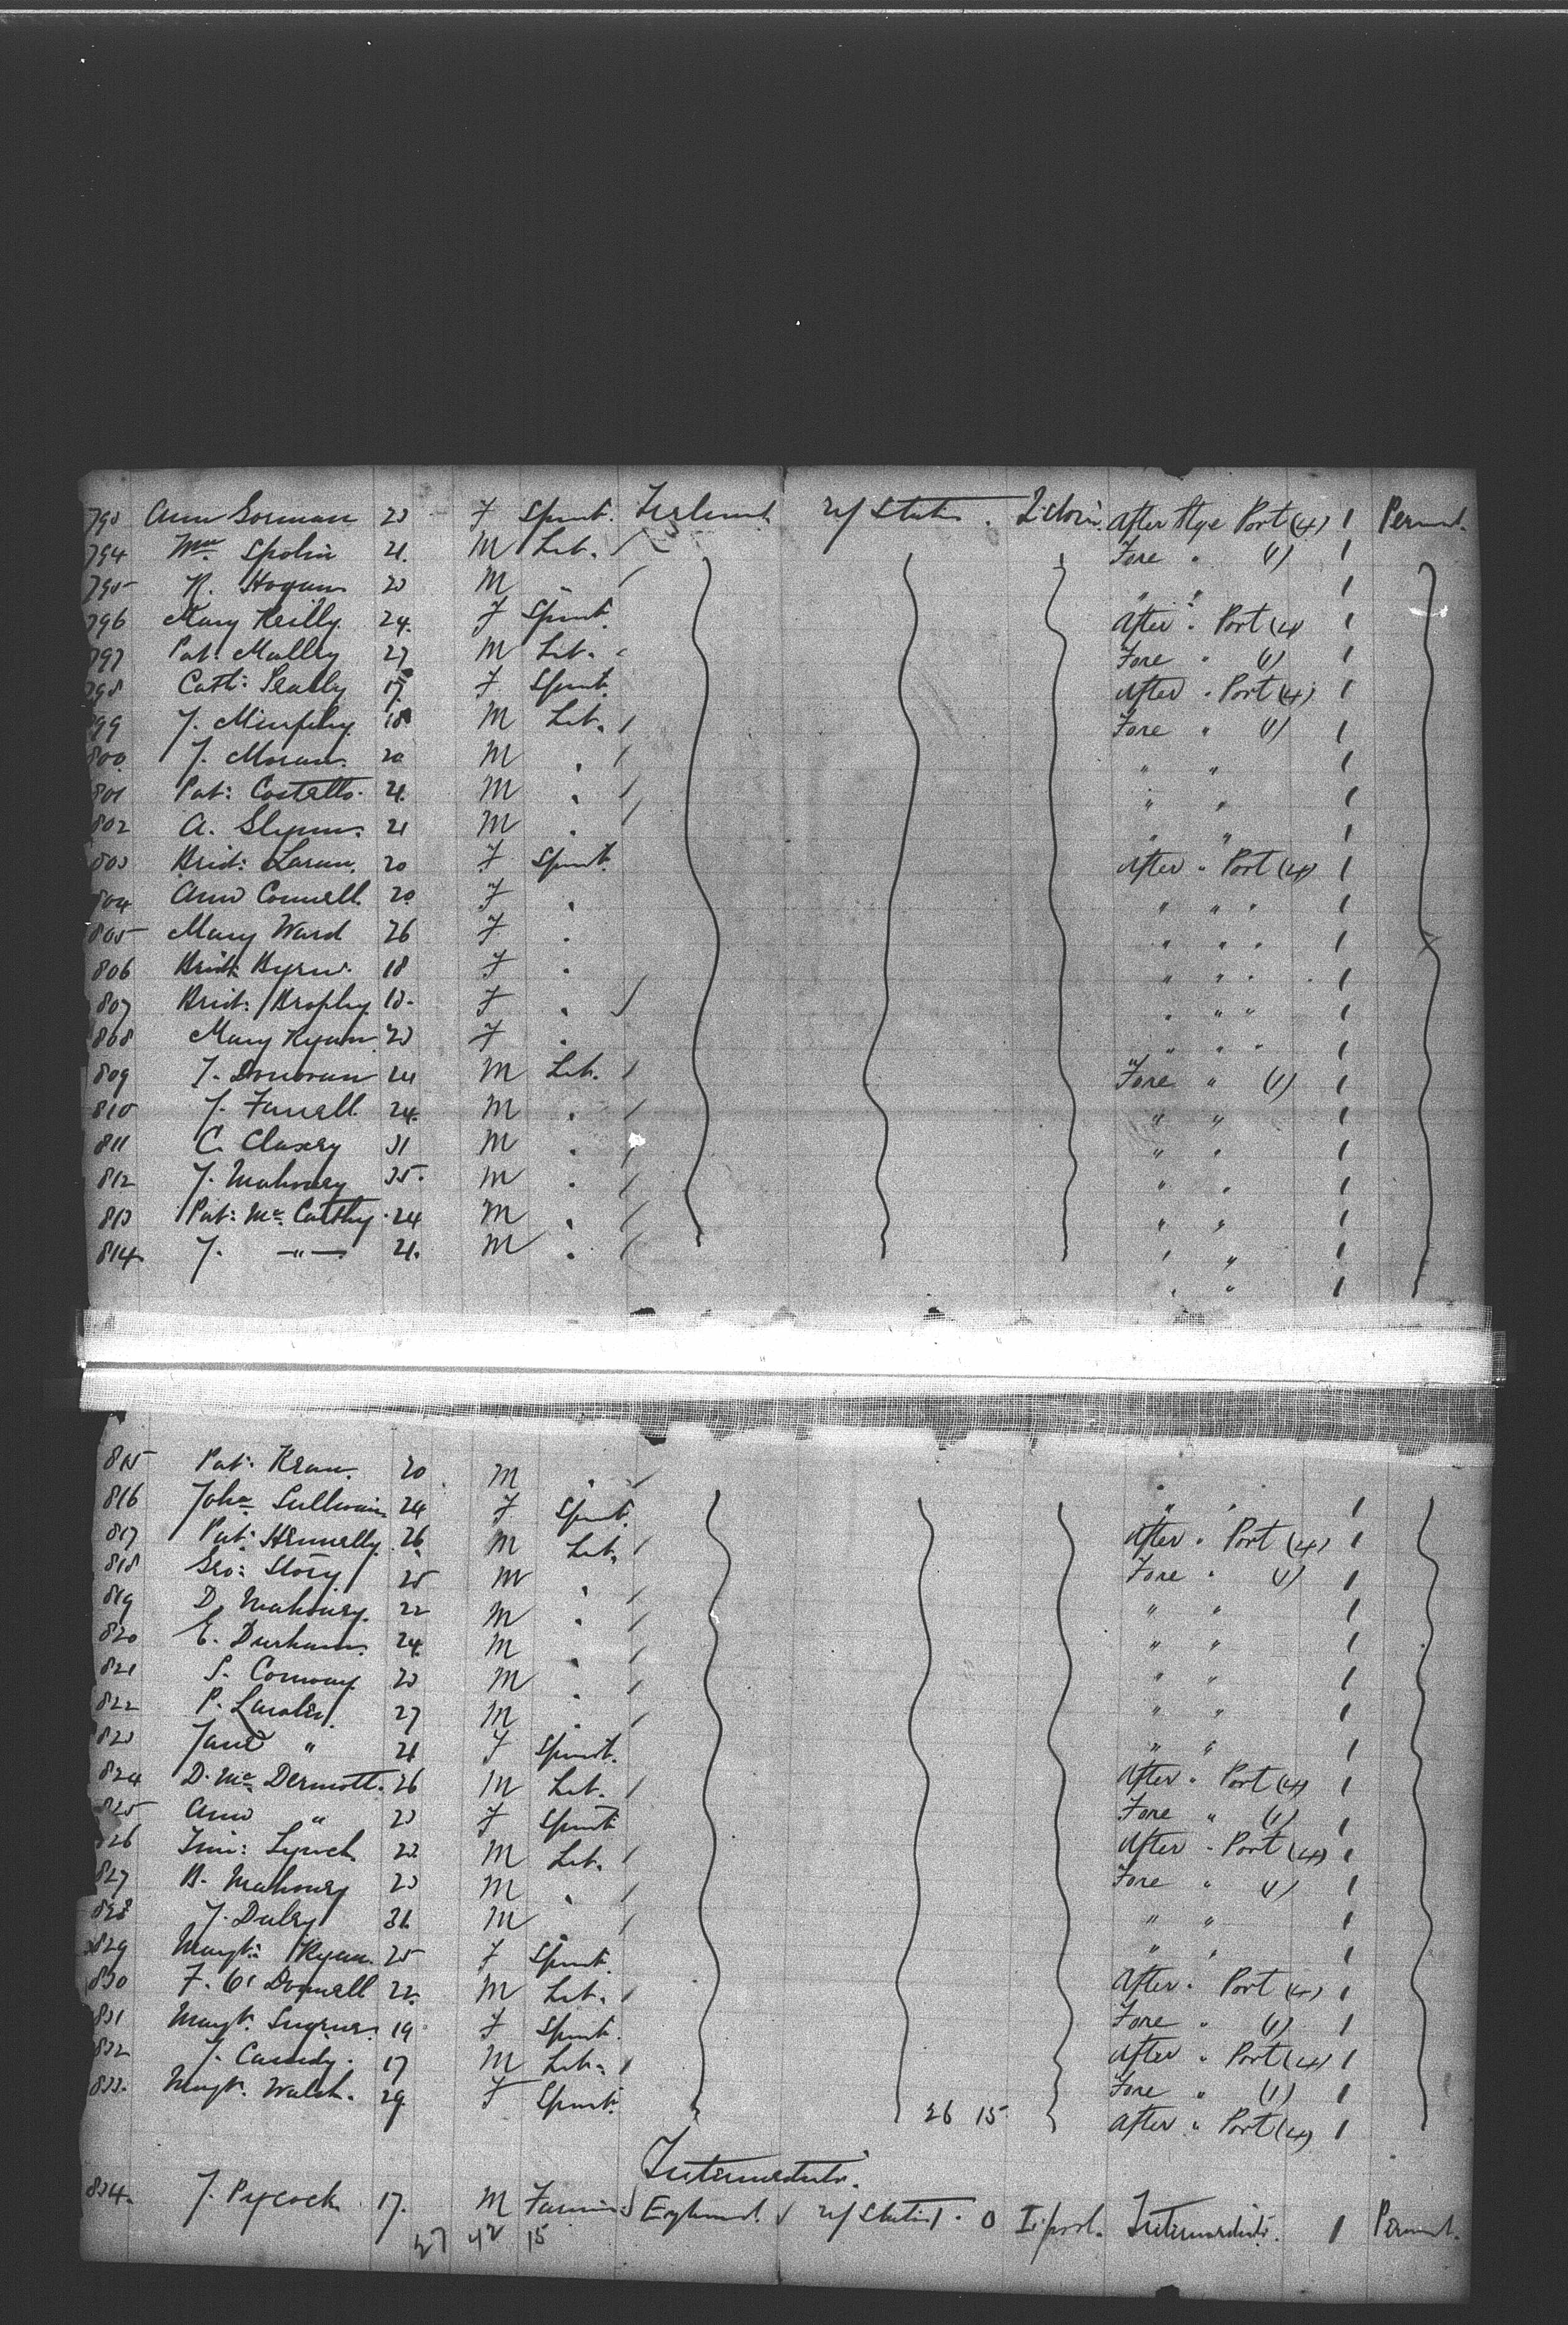 793 Ann Gorman 23 F Spinst. Ireland U/States. Q'town. After Stge Port (4) 1 Perment.
794 Wm Spolin 21. M Lab. / Fore " (1) 1
795 R. Hogan 23 M " / " " 1
796 Mary Reilly. 24. F Spinst. After " Port (4) 1
797 Pat: Malley 27 M Lab. Fore " (1) 1
798 Cath: 17 F Spinst. After " Port (4) 1
799 J. Murphy 18 M Lab. / Fore " (1) 1
800 J. Moran. 20 M " / " " 1
801 Pat: Costello. 21. M " / " " 1
802 A. 21 M " / " " 1
803 Brid: 20 F Spinst. After " Port (4) 1
804 Ann Connell. 20 F " " " " 1
805 Mary Ward 26 F " " " " 1
806 Brid: Byrne. 18 F " " " " 1
807 Brid: Brophy 18. F " / " " " 1
808 Mary Ryan 23 F " " " " 1
809 J. Donovan 24 M Lab. / Fore " (1) 1
810 J. Farrell. 24. M " / " " 1
811 C. 31 M " / " " 1
812 J. Mahoney 35. M " / " " 1
813 Pat: Mc Carthy. 24 M " / " " 1
814. J. —"— 21. M " / " " 1
" " 1
815 Pat: 20 M " /
816 Joha Sullivan 24 F Spinst. " " 1
817 Pat: Hennelly. 26 M Lab. / After " Port (4) 1
818 Geo: Story 25 M " / Fore " (1) 1
819 D. Mahoney. 22 M " / " " 1
820 E. Durham. 24. M " / " " 1
821 S. Conway. 23 M " / " " 1
822 P. Lawler. 27 M " / " " 1
823 Jane " 21 F Spinst. " " 1
824 D. Mc Dermott. 26 M Lab. / After " Port (4) 1
825 Ann " 23 F Spinst. Fore " (1) 1
826 Lynch. 22. M Lab. / After " Port (4) 1
827 B. Mahoney 23 M " / Fore " (1) 1
828 J. Daley 31. M " / " " 1
829 Margt: Ryan. 25 F Spinst. " " 1
830 F. O' Donnell 22. M Lab. / After " Port (4) 1
831 Margt. 19 F Spinst. Fore " (1) 1
832 J. Cassidy. 17 M Lab. / After " Port (4) 1
833. Margt. Walsh. 29. F Spinst. Fore " (1) 1
26 15 After " Port (4) 1
Intermediate.
834. J. Pycock. 17. M England. U/States. 0 L'pool. Intermediate. 1 Perment.
27 42 15